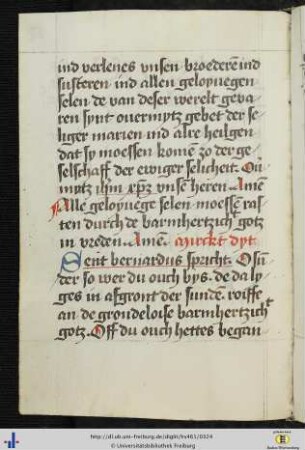 ind verlenes vnsen broederē ind
susteren ind allen geloyuegen
selen de van deser werelt geua
ren synt ouermytz gebet der se
liger marien ind alre heilgen
dat sy moessen komē zo der ge
selschaff der ewiger selicheit. Ou
mytz ihm xpm vnsē heren. Amē
Alle geloyuege selen moessē ras
ten durch de barmhertzich gotz
in vreden. Amē. Mirckt dyt
Sent bernardus spricht. O sū
der so wer du ouch bys. de da ly
ges in affgront der sunde. roiffe
an de grondeloise barmhertzich t
gotz. Off du ouch hettes began
http://dl.ub.uni-freiburg.de/diglit/hs463/0324
© Universitätsbibliothek Freiburg